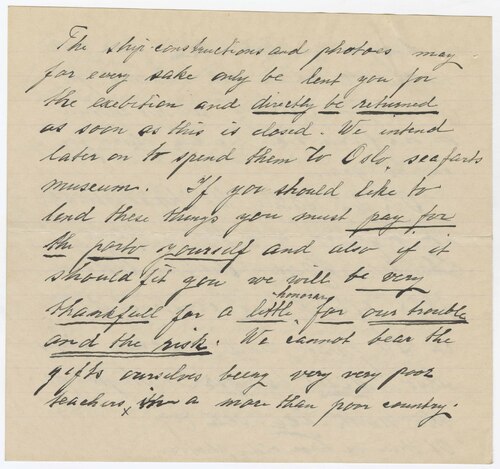 The ship-constructions and photoes may
for every sake only be lent you for
the exebition and directly be returned
as soon as this is closed. We intend
later on to spend them to Oslo, seafarts
museum. If you should like to
lend these things you must pay for
the porto yourself and also if it
should fit you we will be very
honorary
thankfull for a little for our trouble
and the risk. We cannot bear the
gifts ourselves being very very poor
teachers, in a more than poor country.